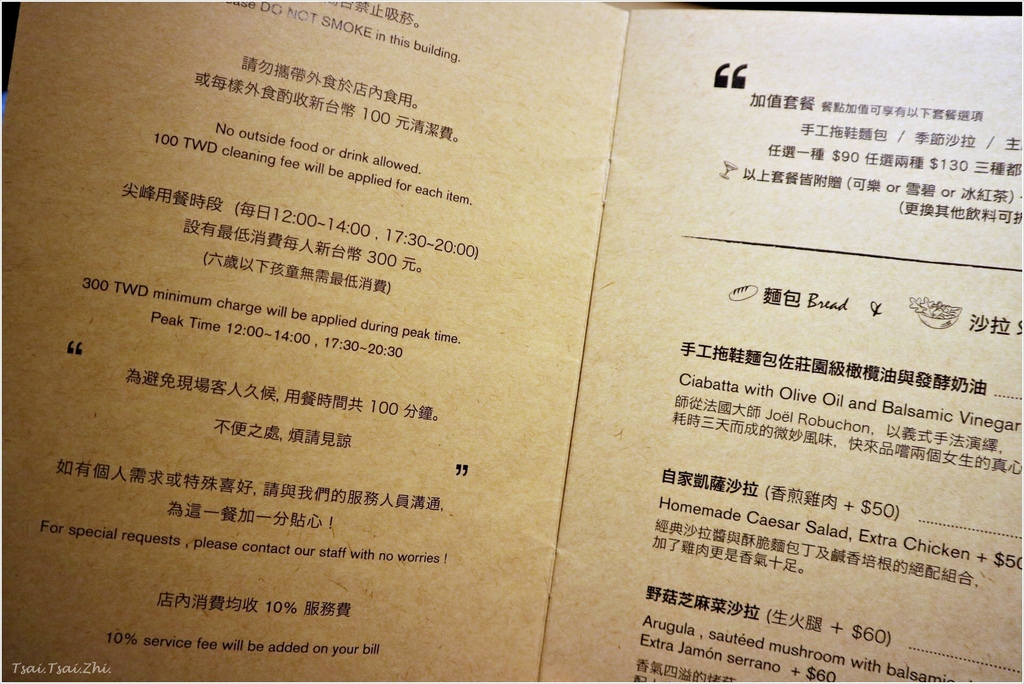 禁止吸菸。
DO NOT SMOKE in this building.
請勿攜帶外食於店內食用。
或每樣外食酌收新台幣 100 元清潔費。
No outside food or drink allowed.
100 TWD cleaning fee will be applied for each item.
尖峰用餐時段 (每日12:00~14:00 , 17:30~20:00)
設有最低消費每人新台幣 300 元。
(六歲以下孩童無需最低消費)
300 TWD minimum charge will be applied during peak time.
Peak Time 12:00~14:00 , 17:30~20:30
“
為避免現場客人久候, 用餐時間共 100 分鐘。
不便之處, 煩請見諒
”
如有個人需求或特殊喜好, 請與我們的服務人員溝通,
為這一餐加一分貼心 !
For special requests , please contact our staff with no worries !
店內消費均收 10% 服務費
10% service fee will be added on your bill
Tsai.Tsai.Zhi.
“
加值套餐 餐點加值可享有以下套餐選項
手工拖鞋麵包 / 季節沙拉 / 主
任選一種 $90 任選兩種 $130 三種都
以上套餐皆附贈 (可樂 or 雪碧 or 冰紅茶)
(更換其他飲料可折
麵包 Bread & 沙拉 S
手工拖鞋麵包佐莊園級橄欖油與發酵奶油
Ciabatta with Olive Oil and Balsamic Vinegar
師從法國大師 Joël Robuchon, 以義式手法演繹,
耗時三天而成的微妙風味, 快來品嚐兩個女生的真心
自家凱薩沙拉 (香煎雞肉 + $50)
Homemade Caesar Salad, Extra Chicken + $50
經典沙拉醬與酥脆麵包丁及鹹香培根的絕配組合,
加了雞肉更是香氣十足。
野菇芝麻菜沙拉 (生火腿 + $60)
Arugula , sautéed mushroom with balsamic
Extra Jamón serrano + $60
香氣四溢的烤菇